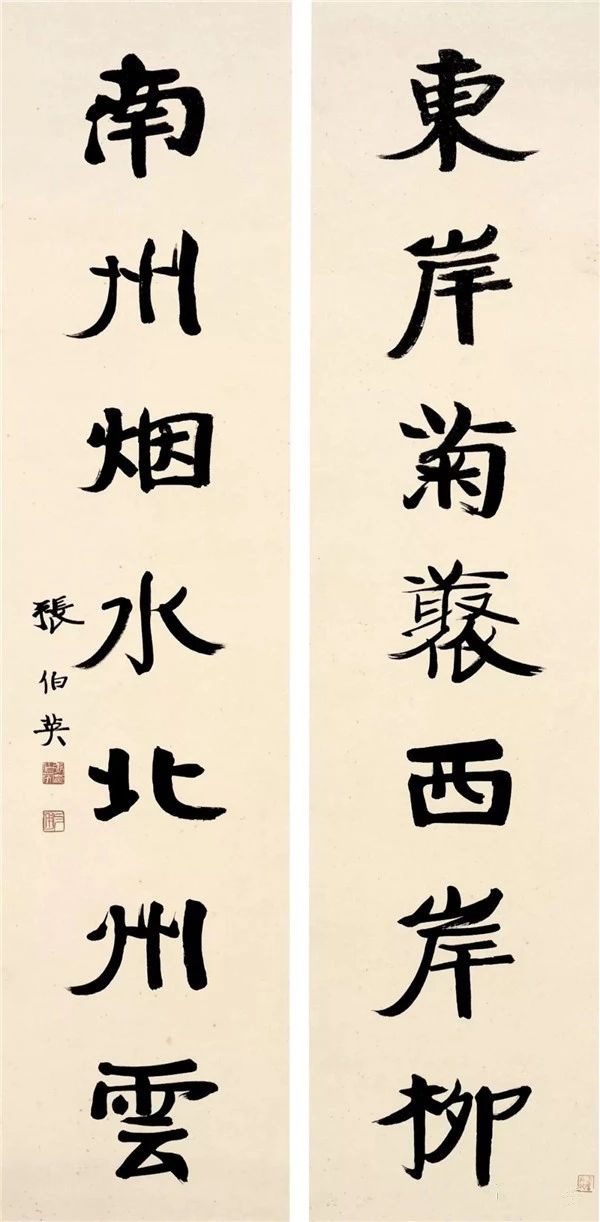 東岸菊藂西岸柳
南州烟水北州雲
張伯英